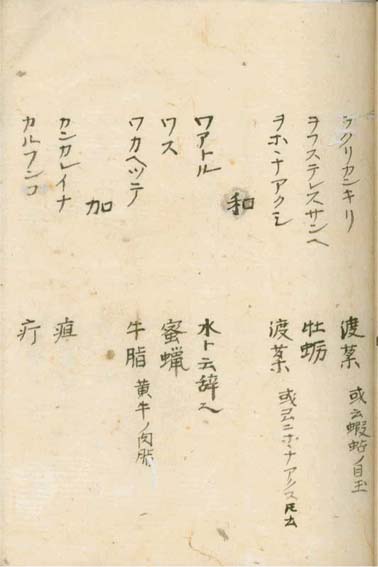 ヲクリカンキリ 渡薬 或云蝦蛄ノ目玉
ヲフステレスサンヘ 牡蛎
ヲホヽナアクシ 渡薬 或云ニホヽナアノス
和
ワアトル 水ト云辞也
ワス 蜜蝋
ワカヘツテ 牛脂 黄牛ノ肉脂
加
カンカレイナ 疽
カルフンコ 疔